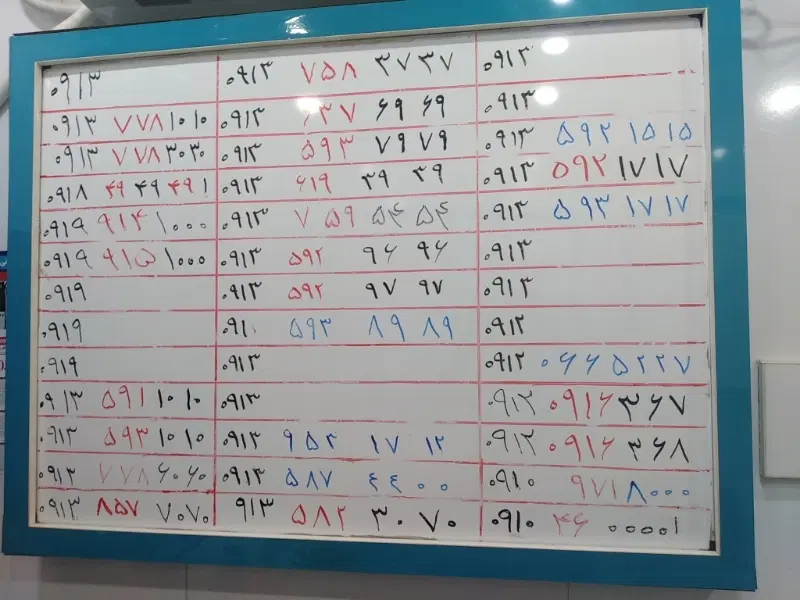 ۰۹۱۳ ۰۹۱۳ ۷۵۸ ۳۷ ۳۷ ۰۹۱۳
۰۹۱۳ ۷۷۸ ۱۰ ۱۰ ۰۹۱۳ ۶۹ ۶۹ ۰۹۱۳
۰۹۱۳ ۷۷۸ ۳۰ ۳۰ ۰۹۱۳ ۵۹۳ ۷۹ ۷۹ ۰۹۱۳ ۵۹۲ ۱۵ ۱۵
۰۹۱۸ ۴۹ ۴۹ ۴۹ ۱ ۰۹۱۳ ۶۱۹ ۳۹ ۳۹ ۰۹۱۳ ۵۹۲ ۱۷ ۱۷
۰۹۱۹ ۹۱۴ ۱۰۰۰ ۰۹۱۳ ۷۵۹ ۵۴ ۵۴ ۰۹۱۳ ۵۹۳ ۱۷ ۱۷
۰۹۱۹ ۹۱۵ ۱۰۰۰ ۰۹۱۳ ۵۹۲ ۹۶ ۹۶ ۰۹۱۳
۰۹۱۹ ۰۹۱۳ ۵۹۲ ۹۷ ۹۷ ۰۹۱۳
۰۹۱۹ ۰۹۱ ۵۹۳ ۸۹ ۸۹ ۰۹۱۲
۰۹۱۹ ۰۹۱۳ ۰۹۱۲ ۰۶۶۵۲۲۷
۰۹۱۳ ۵۹۱ ۱۰ ۱۰ ۰۹۱۳ ۰۹۱۲ ۰۹۱۶ ۳۶۷
۰۹۱۳ ۵۹۳ ۱۰ ۱۰ ۰۹۱۳ ۹۵۲ ۱۷ ۱۲ ۰۹۱۲ ۰۹۱۶ ۳۶۸
۰۹۱۳ ۷۷۸ ۶۰ ۶۰ ۰۹۱۳ ۵۸۷ ۴۴ ۰۰ ۰۹۱۰ ۹۷۱ ۸۰۰۰
۰۹۱۳ ۸۵۷ ۷۰ ۷۰ ۹۱۳ ۵۸۲ ۳۰ ۷۰ ۰۹۱۰ ۴۶ ۰۰۰۰۱